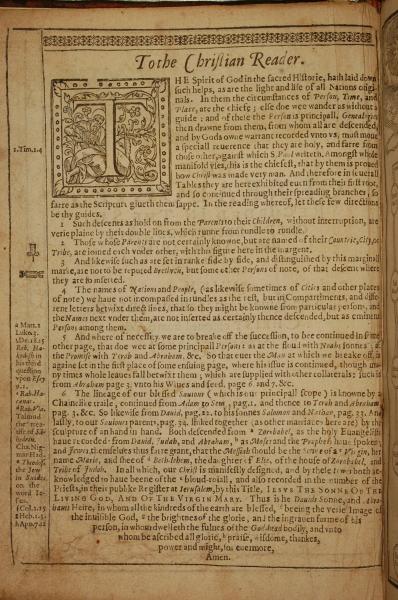 To the Christian Reader.
THE Spirit of God in the sacred Historie, hath laid down
such helps, as are the light and life of all Nations origi-
nals. In them the circumstances of Person, Time, and
Place, are the chiefe; else doe wee wander as without a
guide: and of these the Person is principall, Genealogies
then drawne from them, from whom all are descended,
and by Gods owne warrant recorded vnto vs, must moue
a speciall reuerence that they are holy, and farre from
those other, against which S. Paul writeth. Amongst which
manifold vses, this is the chiefest, that by them is proued
how Christ was made very man. And therefore in seuerall
Tables they are here exhibited euen from their first root,
and so continued through their spreading branches, so
farre as the Scripture giueth them sappe. In the reading whereof, let these few directions
be thy guides.
1.Tim.1.4
1 Such descents as hold on from the Parents to their Children, without interruption, are
verie plaine by their double lines, which runne from rundle to rundle.
2 Those whose Parents are not certainly knowne, but are named of their Countrie, City, or
Tribe, are ioined each vnder other, with this figure here in the margent.
3 And likewise such as are set in ranke side by side, and distinguished by this marginall
marke, are not to be reputed Brethren, but some other Persons of note, of that descent where
they are so inserted.
4 The names of Nations and People, (as likewise sometimes of Cities and other places
of note) we haue not incompassed in rundles as the rest, but in Compartments, and diffe-
rent letters betwixt direct lines, that so they might be knowne from particular persons, and
the Names next vnder them, are not inserted as certainly thence descended, but as eminent
Persons among them.
5 And where of necessity we are to breake off the succession, to be continued in some
other page, that doe wee at some principall Persons: as at the floud with Noahs sonnes: at
the Promise with Terah and Abraham, &c. So that euer the Man at which we breake off, is
againe set in the first place of some ensuing page, where his issue is continued, though ma-
ny times whole leaues fall betwixt them; which are supplied with other collaterals: such is
from Abraham page 3. vnto his Wiues and seed, page 6. and 7. &c.
6 The lineage of our blessed Sauiour (which is our principall scope) is knowne by a
Chaine-like traile, continued from Adam to Sem, pag.1. and thence to Terah and Abraham,
pag. 3. &c. So likewise from Dauid, pag. 22. to his sonnes Salomon and Nathan, pag. 23. And
lastly, to our Sauiours parents, pag. 34. linked together (as other mariages here are) by the
sculpture of an hand in hand. Both descended from Zorobabel, as the holy Euangelists
haue recorded: from Dauid, Judah, and Abraham, as Moses and the Prophets haue spoken:
and Jewes themselues thus farre grant, that the Messiah should be the Sonne of a Virgin, her
name Marie, and shee of Beth-lehem, the daughter of Elie, of the house of Zorobabel, and
Tribe of Judah. In all which, our Christ is manifestly designed, and by these two both ac-
knowledged to haue beene of the bloud-roiall, and also recorded in the number of the
Priests, in their publike Register at Jerusalem, by this Title, IESVS THE SONNE OF THE
LIVING GOD, AND OF THE VIRGIN MARY. Thus is he Dauids Sonne, and Abra-
hams Heire, in whom all the kindreds of the earth are blessed, being the verie Image of
the inuisible God, the brightnesse of the glorie, and the ingrauen forme of his
person, in whom dwelleth the fulnes of the God-head bodily, and vnto
whom be ascribed all glorie, praise, wisdome, thankes,
power and might, for euermore,
Amen.
a Matt.1
Luke.3.
Rab. Ha-
kadosh in
his third
question
vpon Esay
Talmud
the trea-
on the
word Ie-
sus.
f Col.1.15
g Heb.1.3.
h Apo.7.12